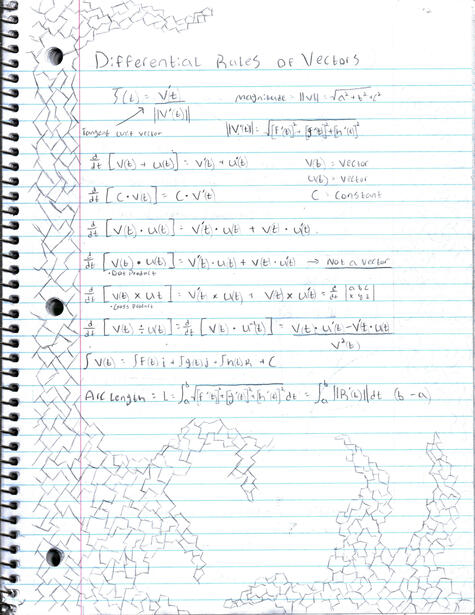 Differential Rules of Vectors
T(t) = V't / ||V'(t)|| magnitude = ||V|| = √a²+b²+c²
Tangent unit vector ||V'(t)|| = √[f'(t)]²+[g'(t)]²+[h'(t)]²
d/dt [V(t) + u(t)] = V'(t) + u'(t) V(t) = vector
u(t) = vector
d/dt [C · V(t)] = C · V'(t) C = constant
d/dt [V(t) · u(t)] = V'(t) · u(t) + V(t) · u'(t).
d/dt [V(t) • u(t)] = V'(t) · u(t) + V(t) · u'(t) → Not a vector
• Dot Product
d/dt [V(t) x u t] = V'(t) x u(t) + V(t) x u'(t) = d/dt |a b c
• Cross product x y z|
d/dt [V(t) ÷ u(t)] = d/dt [V(t) · u⁻¹(t)] = V(t) · u'(t) - V't · u(t)
V²(t)
∫V(t) = ∫f(t)i + ∫g(t)j + ∫h(t)k + C
Arc Length = L = ∫ₐᵇ √[f'(t)]²+[g'(t)]²+[h'(t)]² dt = ∫ₐᵇ ||R'(t)|| dt (b - a)